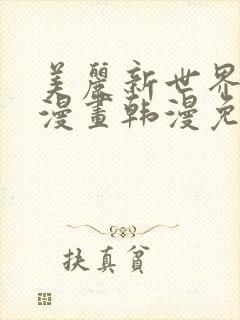 美麗新世界
漫畫韩漫免
扶真貧